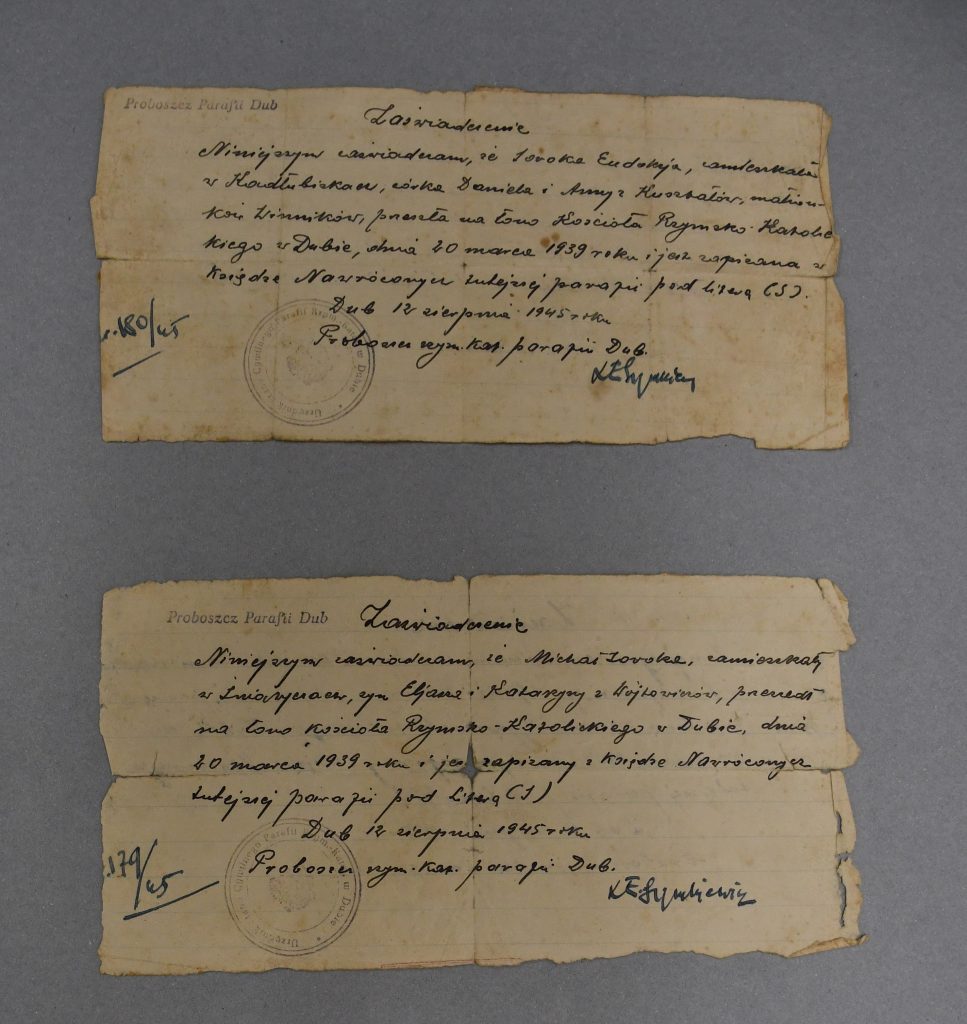 Proboszcz Parafii Dub
Zaświadczenie
Niniejszym zaświadczam, że Soroka Eudokja, zamieszkała
w Kadłubiskach, córka Daniela i Anny z małżon-
ków Winników, przeszła na łono Kościoła Rzymsko-Katolic
kiego w Dubie, dnia 20 marca 1939 roku i jest zapisana w
Księdze Nawróconych tutejszej parafii pod literą (S).
Dub 12 sierpnia 1945 roku
Proboszcz rzym. kat. parafii Dub.
180/45
Urzędnik Stanu Cywilnego Parafii Rzym.-Kat. w Dubie
Proboszcz Parafii Dub
Zaświadczenie
Niniejszym zaświadczam, że Michał Soroka, zamieszkały
w syn Eljasza i Katarzyny z Wójtowiczów, przeszedł
na łono Kościoła Rzymsko-Katolickiego w Dubie, dnia
20 marca 1939 roku i jest zapisany w Księdze Nawróconych
tutejszej parafii pod literą (S)
Dub 12 sierpnia 1945 roku
Proboszcz rzym. kat. parafii Dub.
179/45
Urzędnik Stanu Cywilnego Parafii Rzym.-Kat. w Dubie